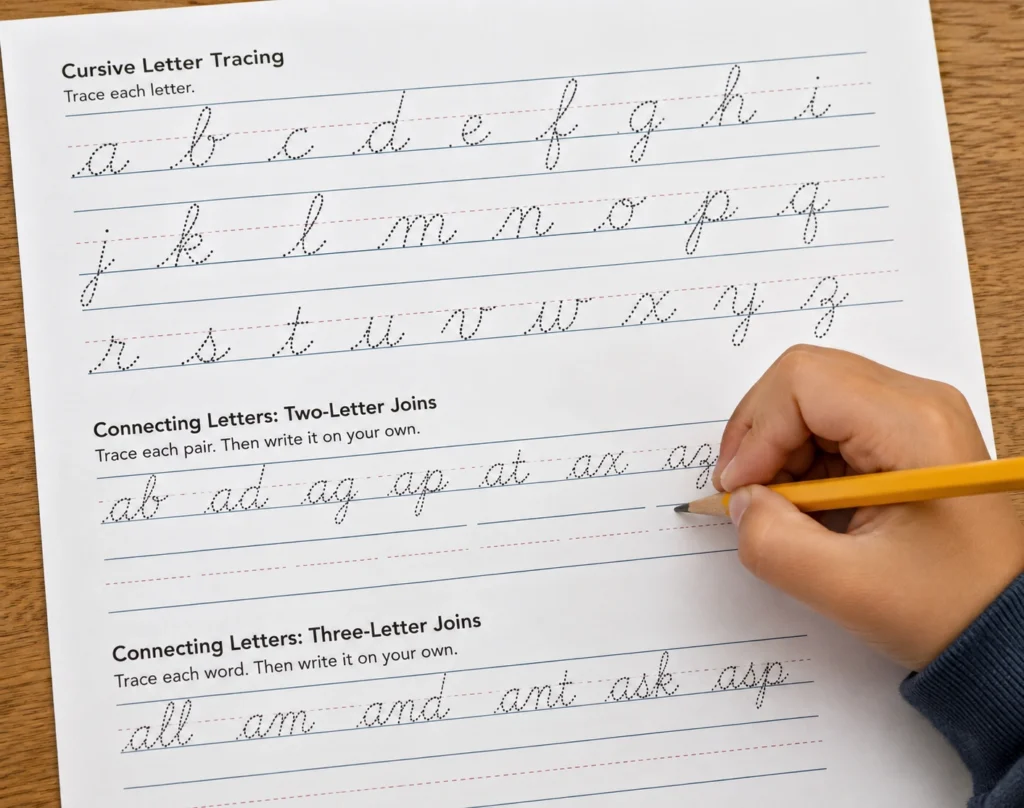 Cursive Letter Tracing
Trace each letter.
a b c d e f g h i
j k l m n o p q
r s t u v w x y z
Connecting Letters: Two-Letter Joins
Trace each pair. Then write it on your own.
ab ad ag ap at ax az
Connecting Letters: Three-Letter Joins
Trace each word. Then write it on your own.
all am and ant ask asp